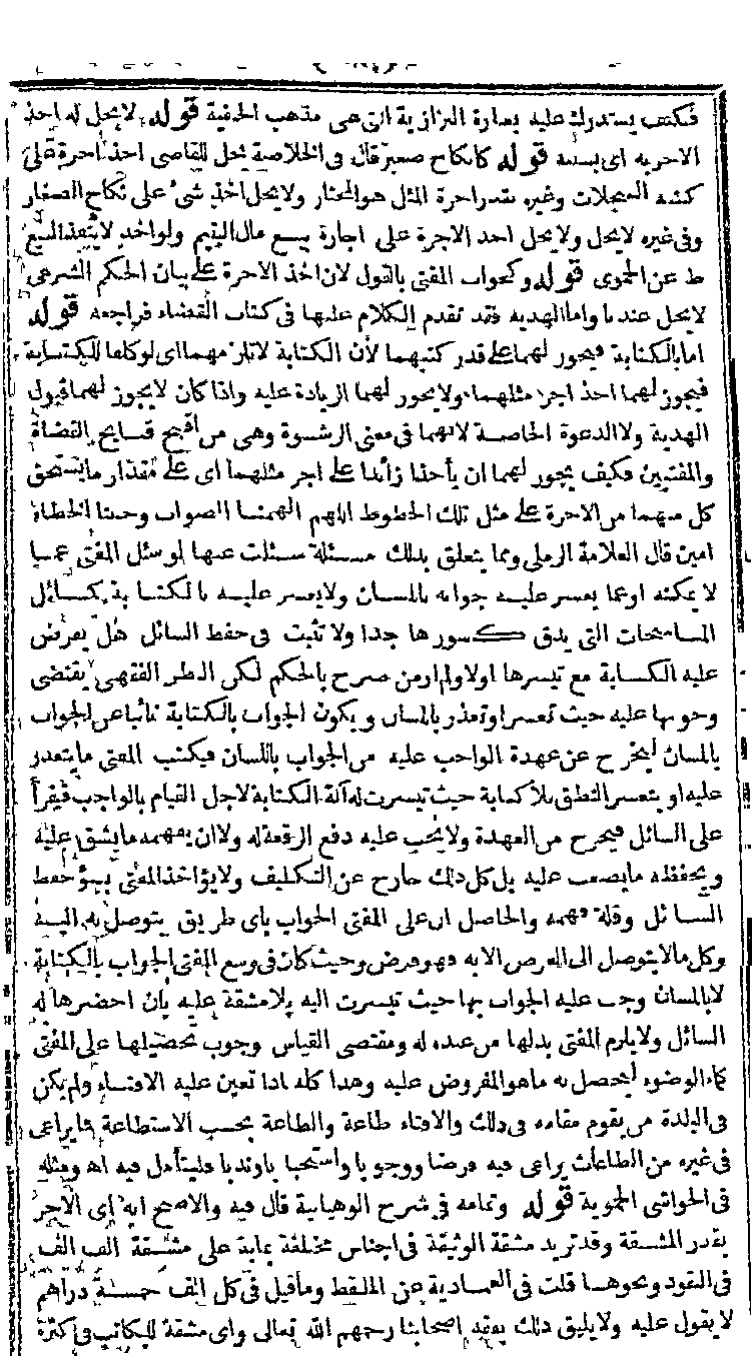 فكيف يستدرك عليه بعبارة البزازية التي هي مذهب الحنفية قوله لا يحل له اخذ
الاجر به اى بسببه قوله كانكاح صغير قال فى الخلاصة يحل للقاضى اخذ اجرة على
كتبه السجلات وغيره بقدر اجرة المثل هو المختار ولا يحل اخذ شئ على نكاح الصغار
وفى غيره لا يحل ولا يحل اخذ الاجرة على اجازة بيع مال اليتيم ولو اخذ لا ينفذ البيع
ط عن الحموى قوله وكجواب المفتى بالقول لان اخذ الاجرة على بيان الحكم الشرعى
لا يحل عندنا واما الهدية فقد تقدم الكلام عليها فى كتاب القضاء فراجعه قوله
اما بالكتابة فيجوز لهما على قدر كتبهما لأن الكتابة لا تلزمهما اى لو كلفا للكتابة
فيجوز لهما اخذ اجر مثلهما ولا يجوز لهما الزيادة عليه واذا كان لا يجوز لهما قبول
الهدية ولا الدعوة الخاصة لانهما فى معنى الرشوة وهى من أقبح قبايح القضاة
والمفتيين فكيف يجوز لهما ان يأخذا زائدا على اجر مثلهما اى على مقدار ما يستحق
كل منهما من الاجرة على مثل تلك الخطوط اللهم الهمنا الصواب وجنبنا الخطأ
امين قال العلامة الرملى ومما يتعلق بذلك مسئلة سئلت عنها لو سئل المفتى عما
لا يمكنه او عما يعسر عليه جوابه باللسان ولا يعسر عليه بالكتابة كسائل
المسامحات التى يدق كسورها جدا ولا تثبت فى حفظ السائل هل يفرض
عليه الكتابة مع تيسرها اولا ولم ار من صرح بالحكم لكن النظر الفقهى يقتضى
وجوبها عليه حيث تعسر او تعذر باللسان ويكون الجواب بالكتابة نائبا عن الجواب
باللسان ليخرج عن عهدة الواجب عليه من الجواب باللسان فيكتب المفتى ما يتعذر
عليه او يتعسر النطق بلا كتابة حيث تيسرت له آلة الكتابة لاجل القيام بالواجب فيقرأ
على السائل فيخرج من العهدة ولا يجب عليه دفع الرقعة له ولا ان يفهمه ما يشق عليه
ويحفظه ما يصعب عليه بل كل ذلك خارج عن التكليف ولا يؤاخذ المفتى بسوء حفظ
السائل وقلة فهمه والحاصل ان على المفتى الجواب باى طريق يتوصل به اليه
وكل ما لا يتوصل الى الفرض الا به فهو فرض وحيث كان فى وسع المفتى الجواب بالكتابة
لا باللسان وجب عليه الجواب بها حيث تيسرت اليه بلا مشقة عليه بأن احضرها له
السائل ولا يلزم المفتى بذلها من عنده له ومقتضى القياس وجوب تحصيلها على المفتى
كماء الوضوء ليحصل به ما هو المفروض عليه وهذا كله اذا تعين عليه الافتاء ولم يكن
فى البلدة من يقوم مقامه فى ذلك والافتاء طاعة والطاعة بحسب الاستطاعة فما يراعى
فى غيره من الطاعات يراعى فيه فرضا ووجوبا واستحبابا وندبا فليتأمل فيه اه ومثله
فى الحواشى الحموية قوله وتمامه فى شرح الوهبانية قال فيه والاصح انه اى الاجر
بقدر المشقة وقد تزيد مشقة الوثيقة فى اجناس مختلفة بمائة على مشقة الف الف
فى النقود ونحوها قلت فى العمادية عن الملتقط وما قيل فى كل الف خمسة دراهم
لا يقول عليه ولا يليق ذلك بفقه اصحابنا رحمهم الله تعالى واى مشقة للكاتب فى كثرة